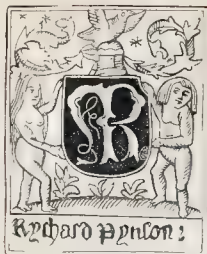 Rychard Pynson: